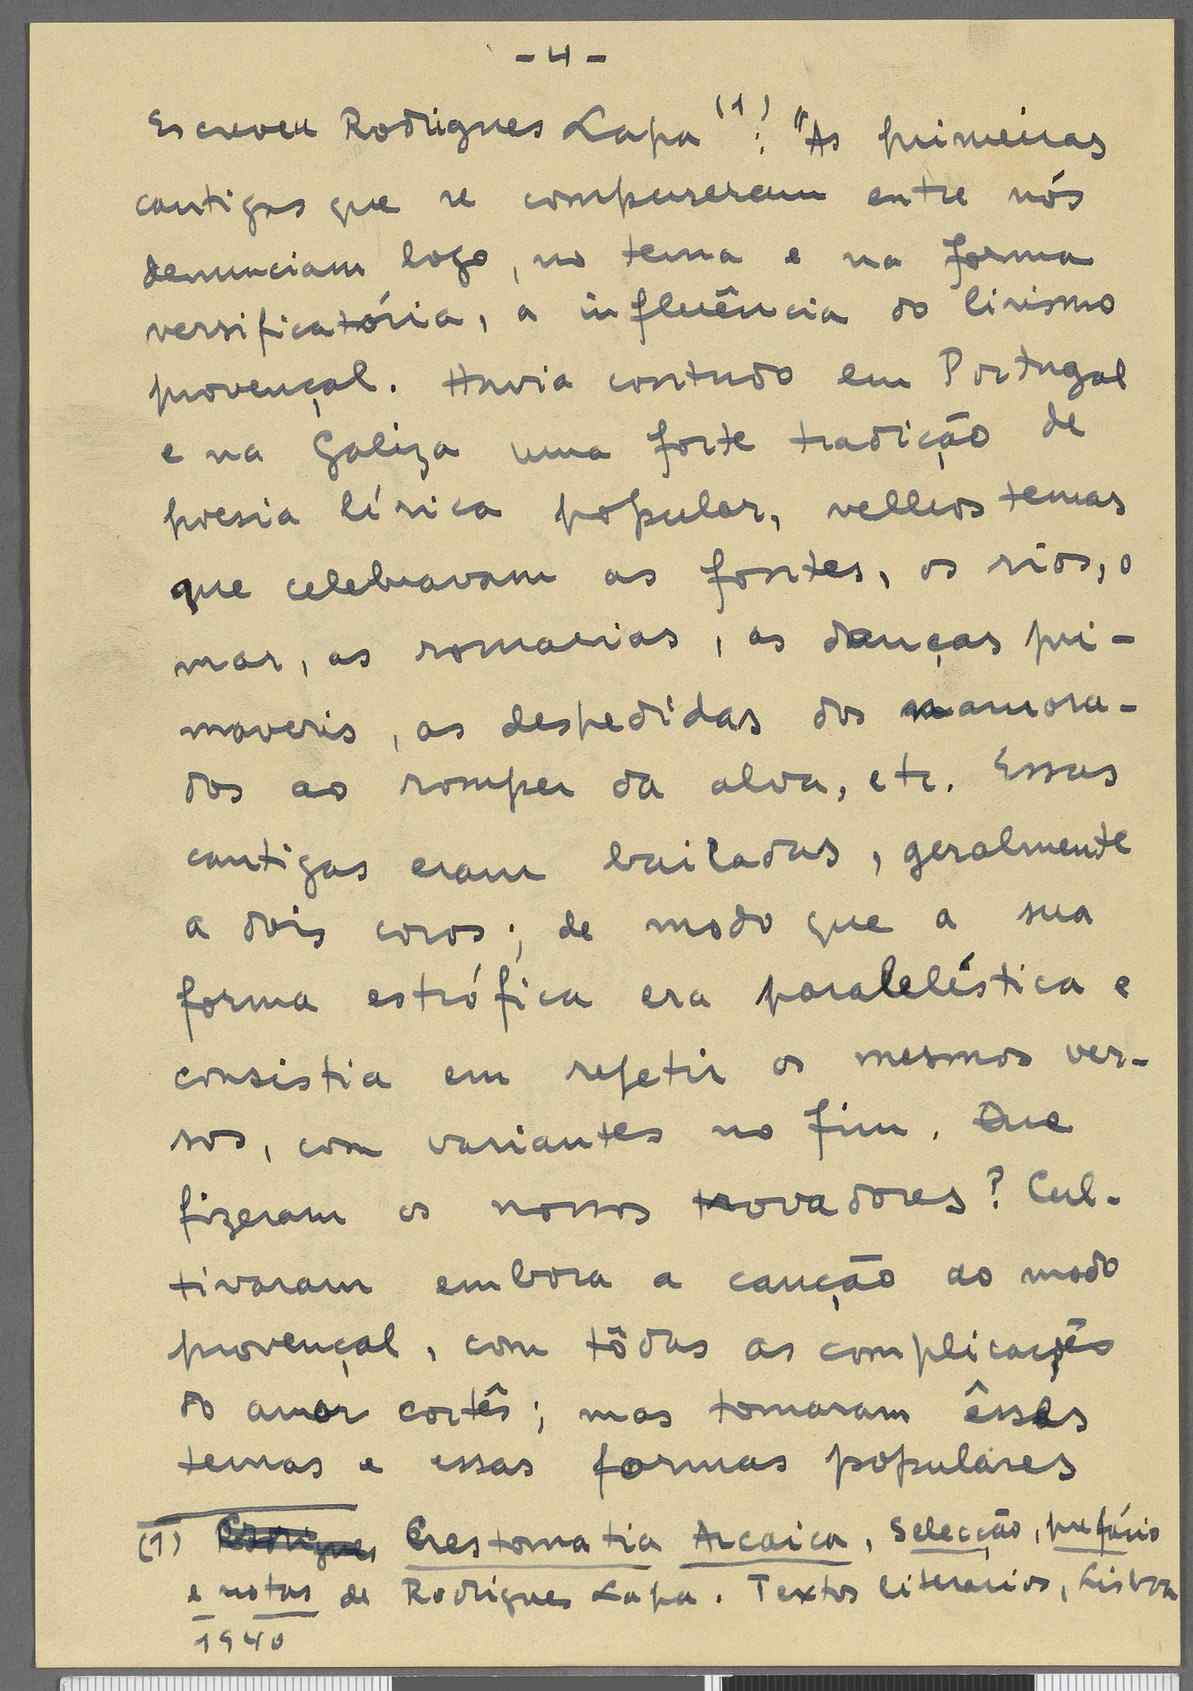 - 4 -
Escreveu Rodrigues Lapa (1): "As primeiras
cantigas que se compuseram entre nós
denunciam logo, no tema e na forma
versificatória, a influência do lirismo
provençal. Havia contudo em Portugal
e na Galiza uma forte tradição de
poesia lírica popular, velhos temas
que celebravam as fontes, os rios, o
mar, as romarias, as danças pri-
maveris, as despedidas dos namora-
dos ao romper da alva, etc. Essas
cantigas eram bailadas, geralmente
a dois coros; de modo que a sua
forma estrófica era paraleléstica e
consistia em repetir os mesmos ver-
sos, com variantes no fim. Que
fizeram os nossos trovadores? Cul-
tivaram embora a canção ao modo
provençal, com tôdas as complicações
do amor cortês; mas tomaram êsses
temas e essas formas populares
(1) Rodrigues Crestomatia Arcaica, Selecção, prefácio
e notas de Rodrigues Lapa. Textos literários, Lisboa
1940